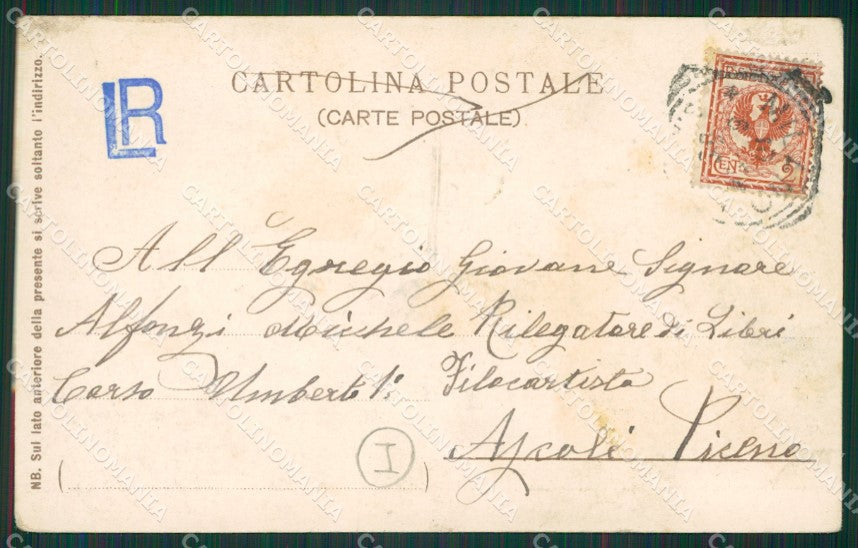 LR
CARTOLINA POSTALE
(CARTE POSTALE)
EN 2
All Egregio Giovane Signore
Alfonzi Michele Rilegatore di Libri
Corso Umberto 1º Filocartista
Ascoli Piceno
I
NB. Sul lato anteriore della presente si scrive soltanto l'indirizzo.
CARTOLINOMANIA